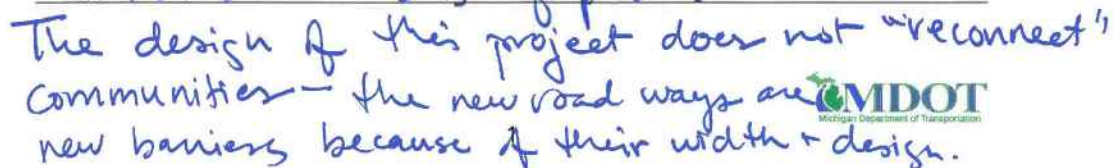 The design of this project does not "reconnect"
communities - the new road ways are
MDOT
Michigan Department of Transportation
new barriers because of their width + design.